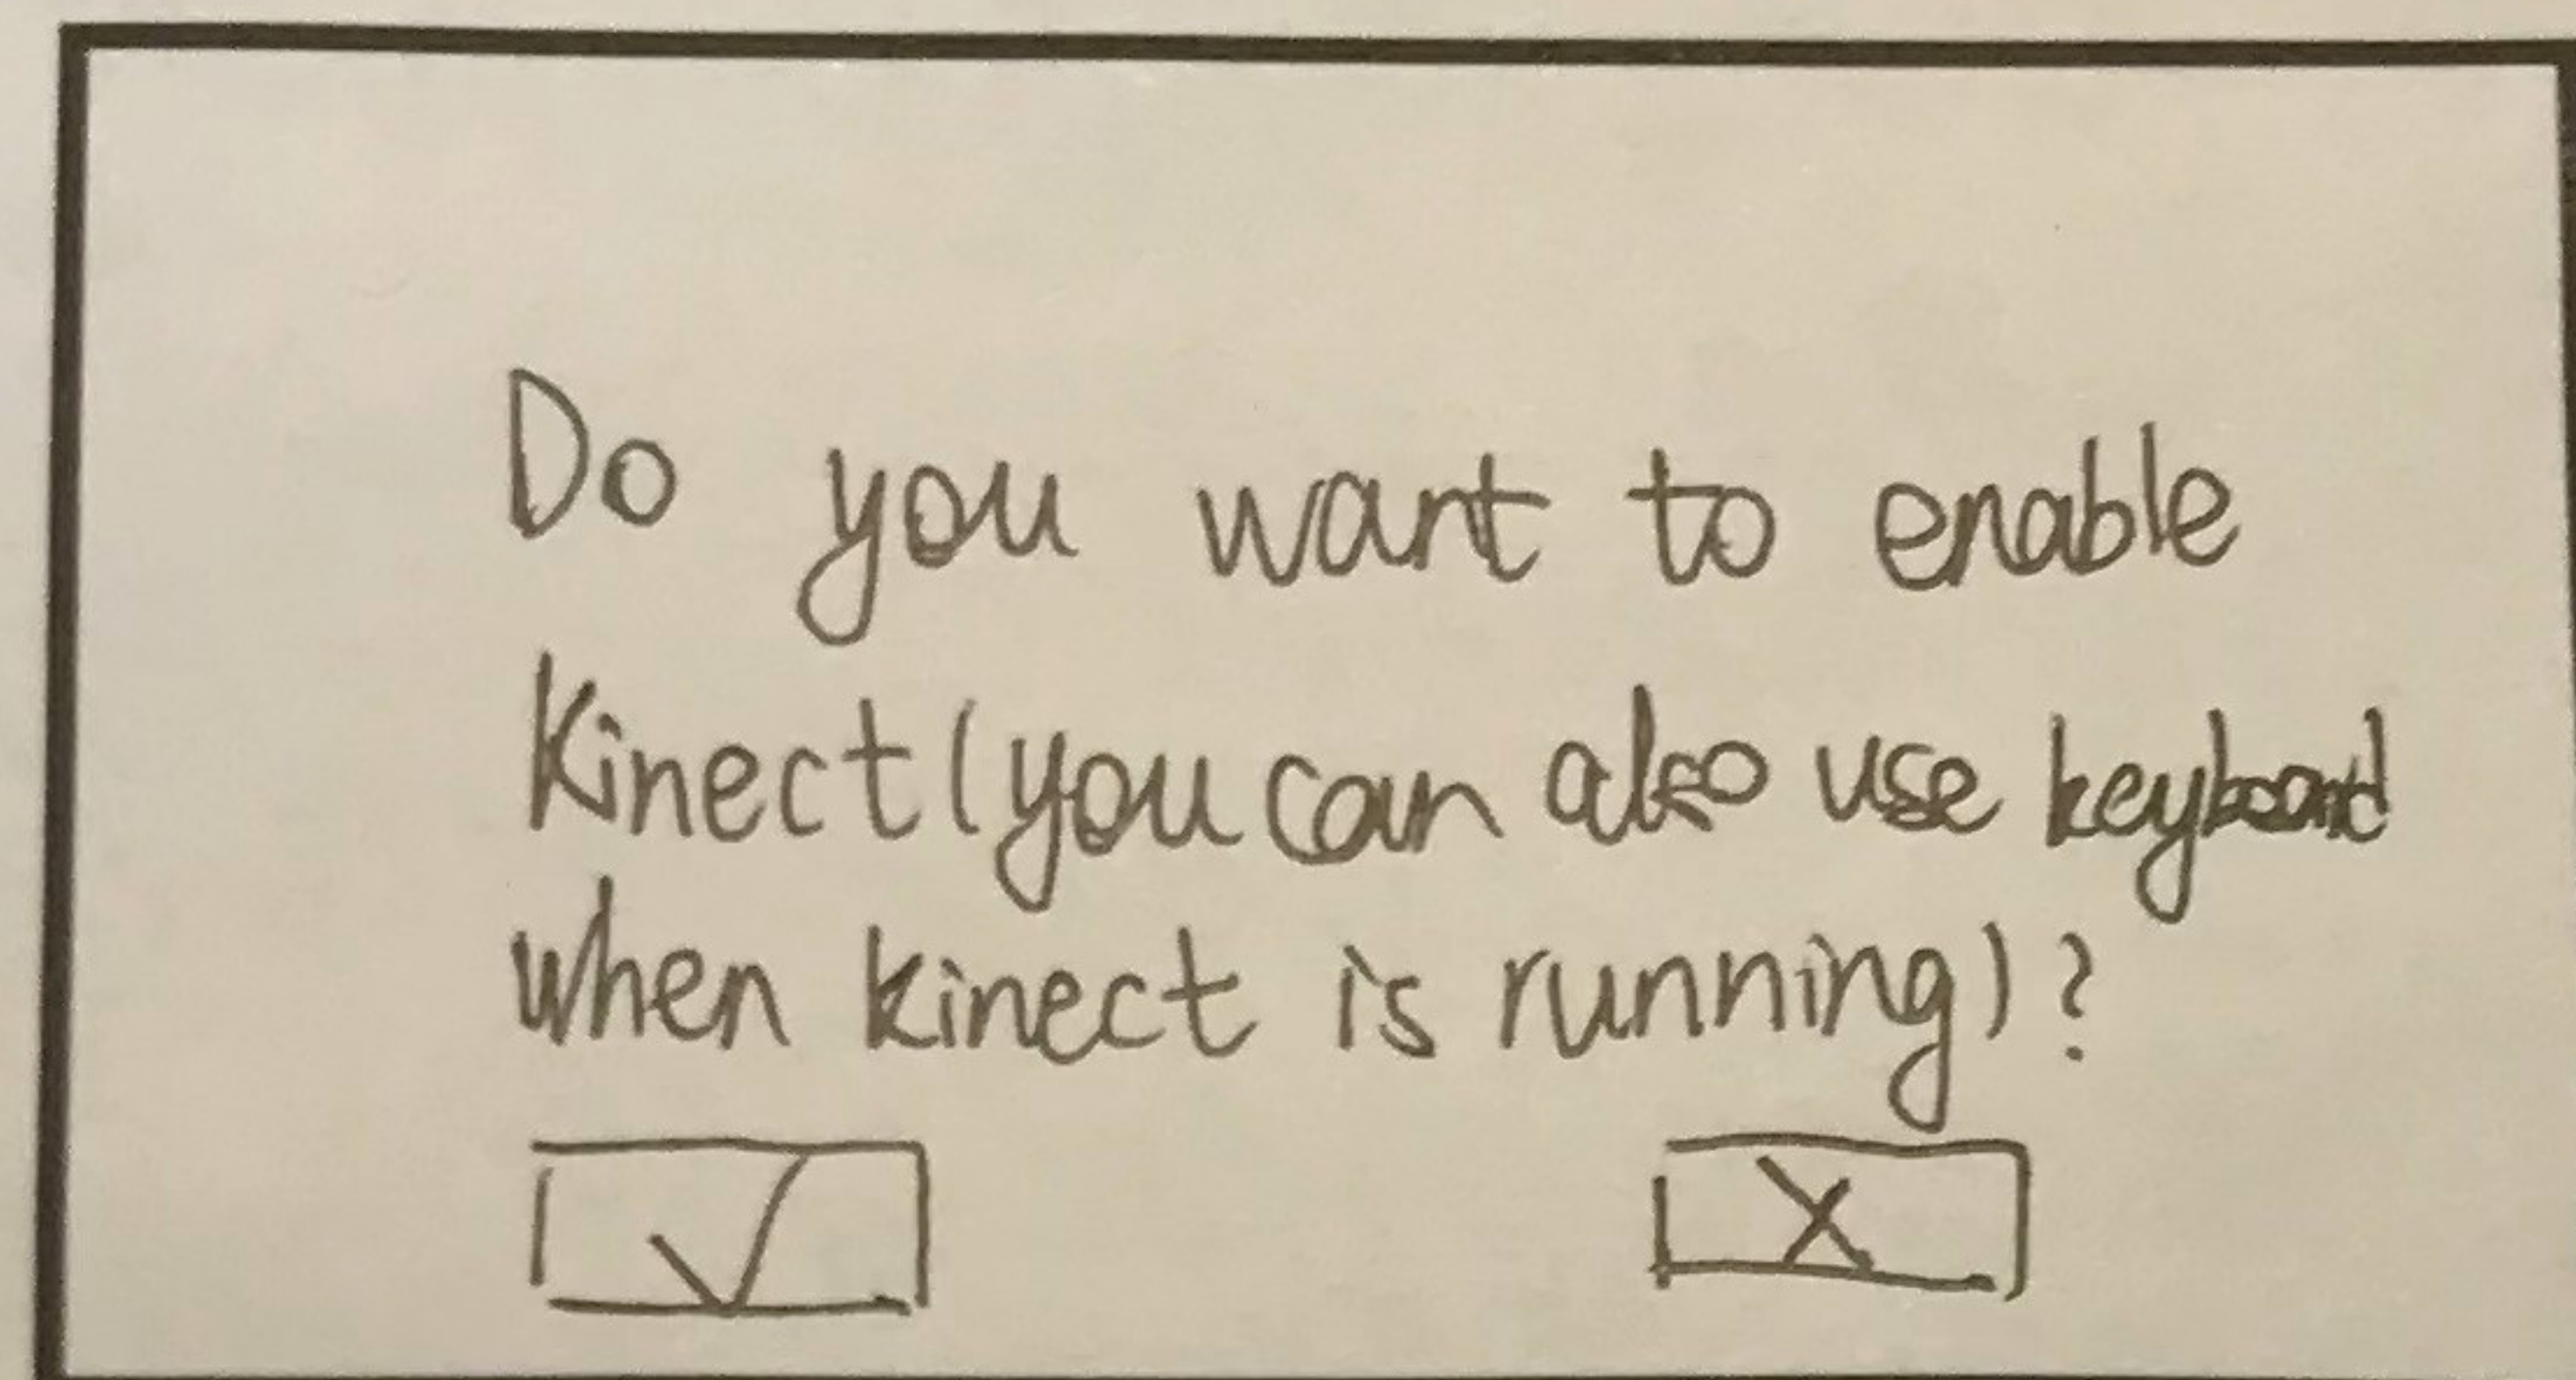 Do you want to enable
Kinect (you can also use keyboard
when kinect is running)?